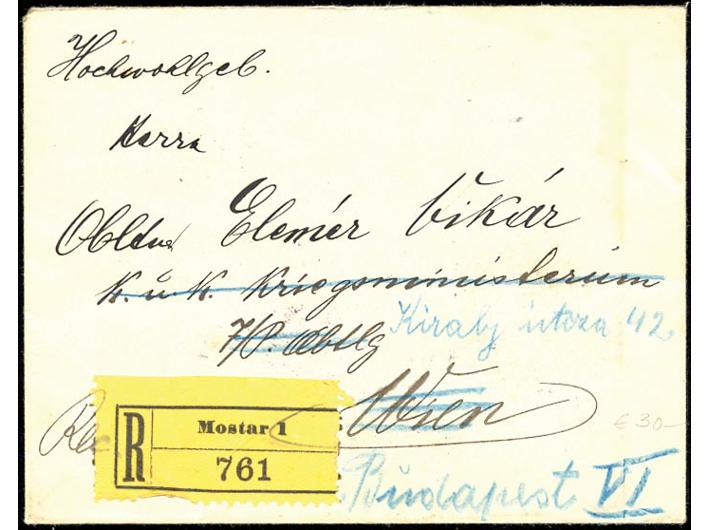 Hochwohlgeb.
Herrn
Obltn Elemér Vikár
k. u. k. Kriegsministerium
7/P. Abtlg Kiraly utcza 42.
Wien
Rec
R
Mostar 1
761
Budapest VI
€ 30-